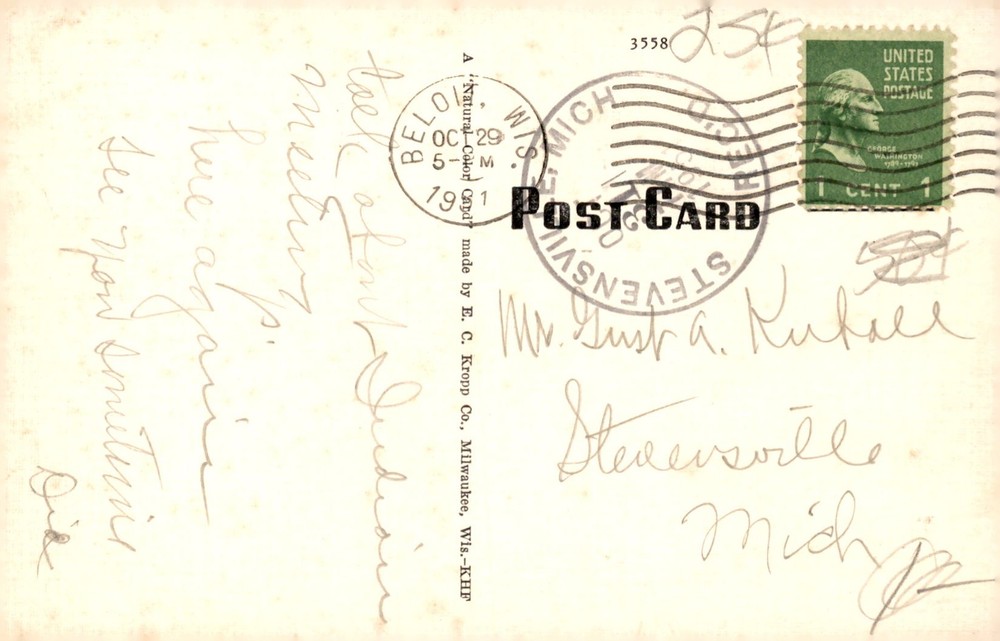 took about Indian
Meeting
here again
see you sometime
A "Natural Color Card" made by E. C. Kropp Co., Milwaukee, Wis.-KHF
3558
25¢
BELOIT, WIS.
OCT 29
5- PM
1951
REC'D
STEVENSVILLE, MICH
UNITED
STATES
POSTAGE
GEORGE
WASHINGTON
1789-1797
1 CENT 1
POST CARD
50¢
Mr. Gust A.
Stevensville
Mich